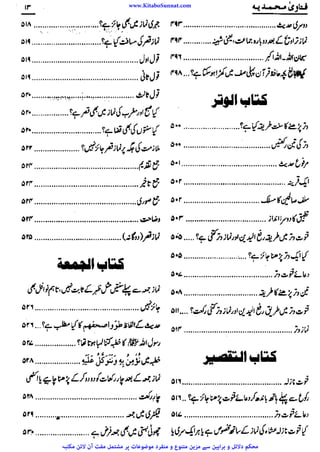 www.KitaboSunnat.com
فتاویٰ محمدیہ
۱۳
دوسری حدیث ۴۹۳
نماز تراویح کے بعد دوبارہ جماعت، یعنی شبینہ ۴۹۳
سبحان اللہ۔ اللہ اکبر ۴۹۶
نابالغ بچہ حافظ قرآن پہلی صف میں کھڑا ہو سکتا ہے؟ ۴۹۸
کتاب الوتر
وتر پڑھنے کا سنت طریقہ کیا ہے؟ ۵۰۰
وتر کی تین رکعتیں ۵۰۰
مرفوع حدیث ۵۰۱
ایک قرینہ ۵۰۲
سلف صالحین کا مسلک ۵۰۲
تطبیق کا دوسرا انداز ۵۰۳
قنوت وتر میں طریق رفع الیدین اور نماز وتر کتنی ہے؟ ۵۰۵
کیا ایک وتر پڑھنا جائز ہے؟ ۵۰۵
دعائے قنوت وتر ۵۰۷
تین وتر پڑھنے کا طریقہ ۵۰۸
قنوت وتر میں طریق رفع الیدین اور نماز وتر کتنی رکعت؟ ۵۱۱
نماز وتر ۵۱۳
کتاب التقصیر
قنوت نازلہ ۵۱۶
رکوع سے پہلے ہاتھ باندھ کر دعائے قنوت پڑھنا جائز ہے؟ ۵۱۶
دعائے قنوت وتر ۵۱۷
کیا قنوت نازلہ عشاء کی نماز کے ساتھ مخصوص ہے یا ہر ایک سری یا
جہری نماز میں بھی جائز ہے؟ ۵۱۸
نماز قصر کی مسافت کیا ہے؟ ۵۱۹
قول اول ۵۱۹
قول ثانی ۵۱۹
قول ثالث ۵۲۰
کیا صبح اور مغرب کی نماز میں بھی قصر ہے؟ ۵۲۰
کیا سنتوں کی بھی قضا ہے؟ ۵۲۰
ملازمت کی جگہ پر نماز قصر جائز نہیں؟ ۵۲۲
جمع تقدیم ۵۲۳
جمع تاخیر ۵۲۳
جمع صوری ۵۲۳
وضاحت ۵۲۳
نماز قصر (دوگانہ) ۵۲۵
کتاب الجمعة
نماز جمعہ سے پہلے سنتیں مثل ظہر کے ثابت نہیں، تاہم نوافل بھی
جائز نہیں ۵۲۶
حدیث کے الفاظ طوّلوا صحفهم کا کیا مطلب ہے؟ ۵۲۶
رسول اللہ ﷺ کا خطبہ کتنا لمبا ہوتا تھا؟ ۵۲۷
خطبہ میں نُؤْمِنُ بِهِ وَنَتَوَكَّلُ عَلَيْهِ ۵۲۸
نماز جمعہ کے بعد چار رکعات دو دو کر کے پڑھنا چاہیے یا اکٹھی
چار رکعت ۵۲۸
فیکٹری میں جمعہ ۵۲۹
چھوٹی بستی میں بھی جمعہ فرض ہے ۵۳۰
محکم دلائل و براہین سے مزین متنوع و منفرد موضوعات پر مشتمل مفت آن لائن مکتبہ